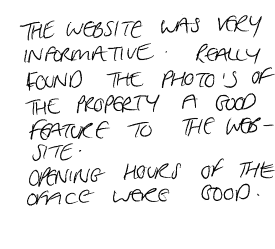 THE WEBSITE WAS VERY
INFORMATIVE. REALLY
FOUND THE PHOTO'S OF
THE PROPERTY A GOOD
FEATURE TO THE WEB-
SITE.
OPENING HOURS OF THE
OFFICE WERE GOOD.